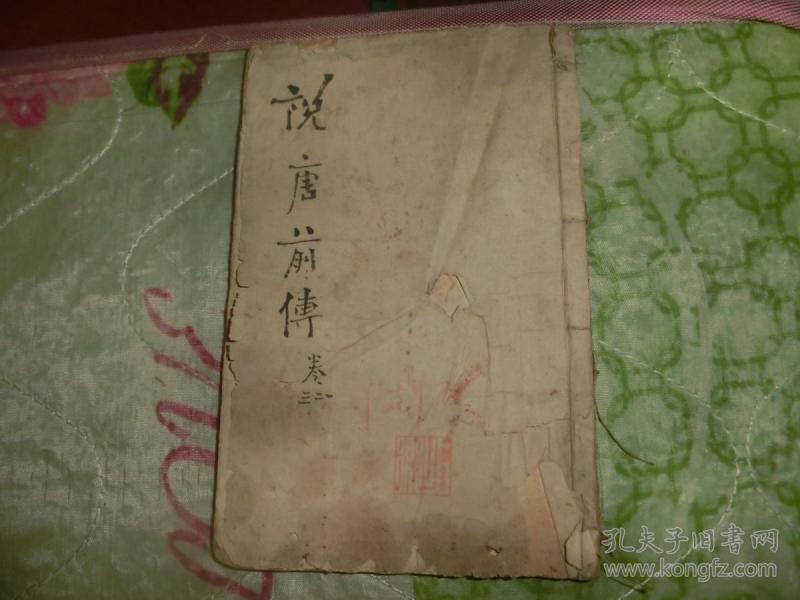 説唐前傳
卷
二三
孔夫子旧書网
www.kongfz.com